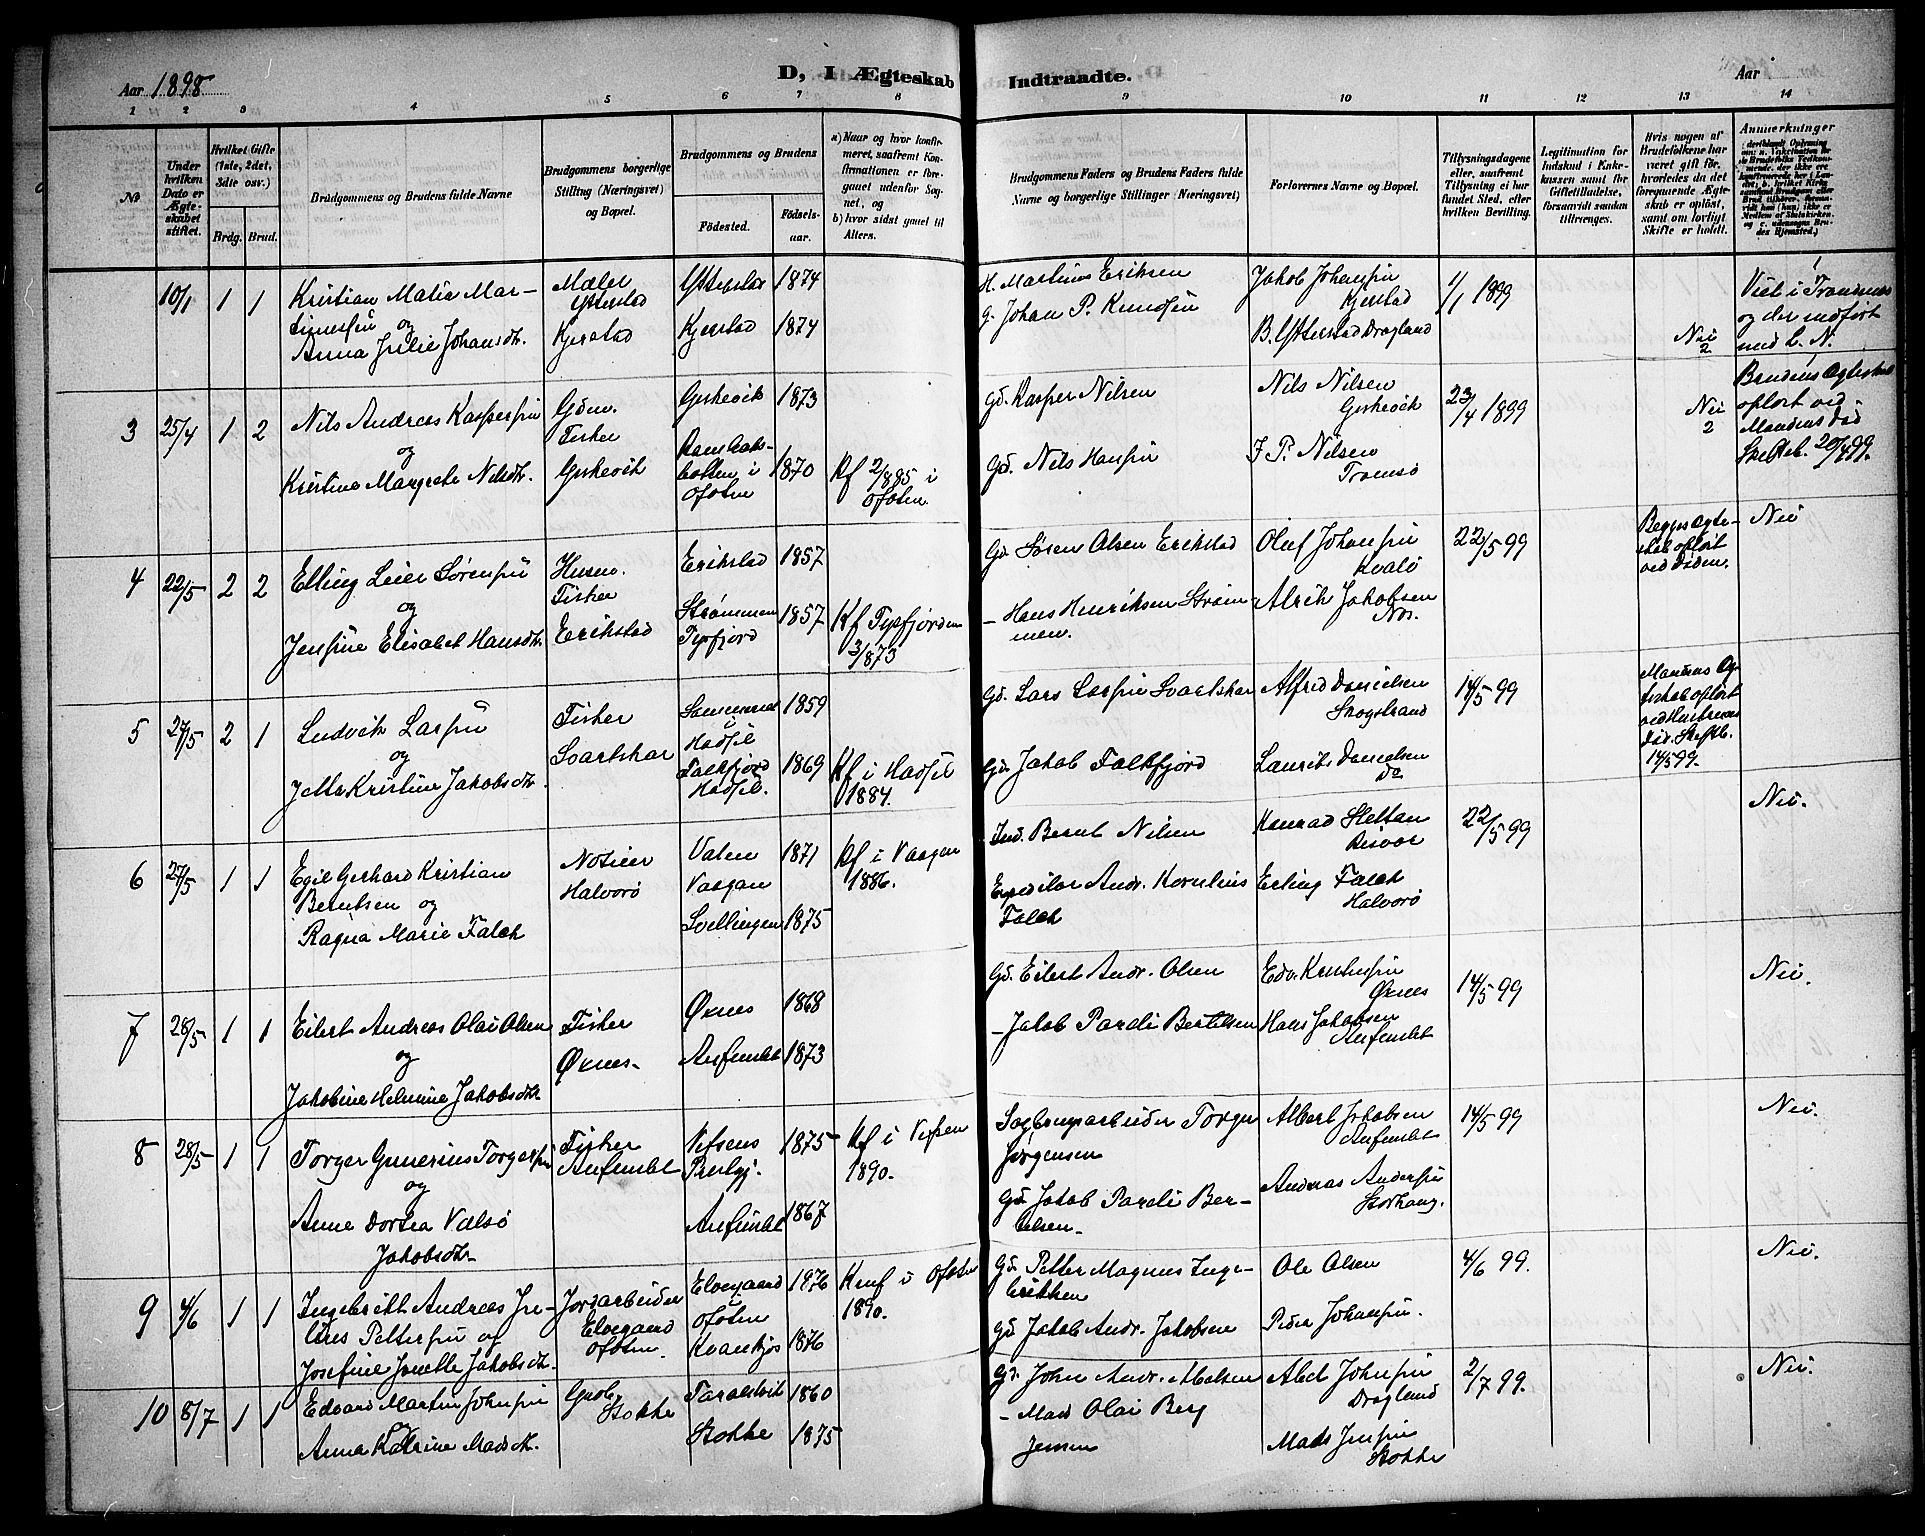 Aar 1898
D, I Ægteskab
Indtraadte.
Aar
1 2 3 4 5 6 7 8 9 10 11 12 13 14
No
Under hvilken Dato er Ægteskabet stiftet.
Hvilket Gifte (1ste, 2det, 3die osv.)
Brdg. Brud.
Brudgommens og Brudens fulde Navne
Brudgommens borgerlige Stilling (Næringsvei) og Bopæl.
Brudgommens og Brudens
Fødested.
Fødselsaar.
a) Naar og hvor konfirmeret, saafremt Konfirmationen er foregaaet udenfor Sognet, og
b) hvor sidst gaaet til Alters.
Brudgommens Faders og Brudens Faders fulde Navne og borgerlige Stillinger (Næringsvei)
Forlovernes Navne og Bopæl.
Tillysningsdagene eller, saafremt Tillysning ei har fundet Sted, efter hvilken Bevilling.
Legitimation for Indskud i Enkekassen samt for Giftetilladelse, forsaavidt saadan tiltrænges.
Hvis nogen af Brudefolkene har været gift før, hvorledes da det foregaaende Ægteskab er opløst, samt om lovligt Skifte er holdt.
Anmerkninger
10/1 1 1
Kristian Matia Martinessen
og
Anna Julie Johansdtr.
Mæler
Ytterstad
Kjerstad
Ytterstad 1874
Kjerstad 1874
H. Martinus Eriksen
G. Johan P. Knudsen
Jakob Johansen
Kjerstad
B. Ytterstad Dragland
1/1 1899
Nei
2
Viet i Trondenes
og der indført
med L. N.
3 25/4 1 2
Nils Andreas Kaspersen
og
Kristine Margrete Nilsdtr.
Gdm.
Fisker
Geskevik
Geskevik 1873
botten i
Ofoten 1870
Kf 2/885 i
Ofoten.
Gd. Kasper Nilsen
Gd. Nils Hansen
Nils Nilsen
Geskevik
J. P. Nilsen
Tromsø
23/4 1899
Nei
2
Brudens Ægteskab
opløst ved
Mandens Død
Skifteb. 20/4 99.
4 22/5 2 2
Elling Leier Sørensen
og
Jensine Elisabet Hansdtr.
Husm.
Fisker
Erikstad
Erikstad 1857
Strømmen
Tysfjord 1857
Kf Tysfjorden
3/873
Gd. Søren Olsen Erikstad
- Hans Henriksen Strømmen.
Oluf Johansen
Kvalø
Alrik Jakobsen
Nos.
22/5 99
Begges Ægteskab opløst
ved Døden.
Nei
5 27/5 2 1
Ludvik Larsen
og
Jette Kristine Jakobsdtr.
Fisker
Svartskar
i
Hadsel 1859
Falkfjord
Hadsel. 1869
Kf i Hadsel
1884.
Gd. Lars Larsen Svartskar
Gd. Jakob Falkfjord
Alfred Danielsen
Skogstrand
Laurits Danielsen
Do
14/5 99
Mandens Ægteskab opløst
ved Hustruens
Død. Skiftb.
14/5 99.
6 27/5 1 1
Egil Gerhard Kristian
Berntsen og
Ragna Marie Falch
Notieer
Halvorø
Valen
Vaagan 1871
Svellingen 1875
Kf i Vaagan
1886.
Ind. Bernt Nilsen
Expeditør Andr. Kornelius
Falch
Konrad Slettan
Risvær
Erling Falch
Halvorø
22/5 99
Nei.
7 28/5 1 1
Eilert Andreas Olai Olsen
og
Jakobine Helmine Jakobsdtr
Fisker
Øxnes
Øxnes 1868
Aufumbt 1873
Gd. Eilert Andr. Olsen
- Jakob Pardi Bertelsen
Edv. Kristensen
Øxnes
Hans Jakobsen
Aufumbt
14/5 99
Nei.
8 28/5 1 1
Torger Gunerius Torgersen
og
Anne Dortea Valsø
Jakobsdtr
Fisker
Aufumbt
Vefsens
Prestgj. 1875
Aufumbt 1867
Kf i Vefsen
1890.
Sagbrugsarbeider Torger
Jørgensen
Gd. Jakob Pardi Bertelsen
Albert Jakobsen
Aufumbt
Andreas Andersen
Storhaug.
14/5 99
Nei.
9 4/6 1 1
Ingebrikt Andreas Petersen og
Josefine Jonette Jakobsdtr.
Jordarbeider
Elvegaard
Ofoten.
Elvegaard
Ofoten 1876
Kvankjos 1876
Konf i Ofoten
1890.
Gd. Petter Magnus Ingebriktsen
Gd. Jakob Andr. Jakobsen
Ole Olsen
Peder Johansen.
4/6 99.
Nei.
10 8/7 1 1
Edvard Martin Johnsen
og
Anna Katrine Madsdtr.
Gaob.
Stokke
Taraldsvik 1860
Stokke 1875
Gd. John Andr. Abelsen
- Mads Olai Berg
Jensen
Abel Johnsen
Dragland
Mads Jensen
Stokke
2/7 99.
Nei.